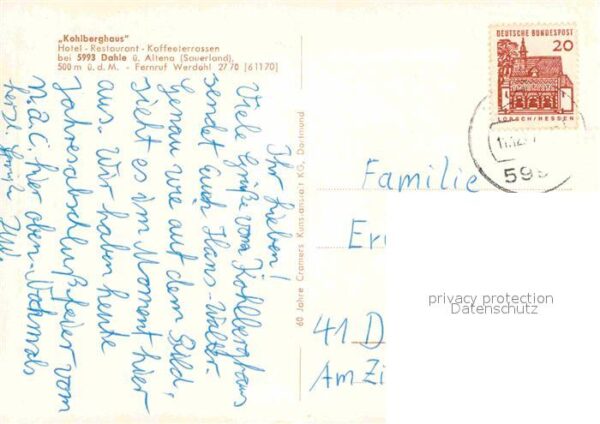 „Kohlberghaus"
Hotel - Restaurant - Kaffeeterrassen
bei 5993 Dahle ü. Altena (Sauerland),
500 m ü. d. M. - Fernruf Werdohl 2770 [61170]
Ihr Lieben!
Viele Grüße vom Kohlberghaus
sendet euch Hans-Walter.
Genau wie auf dem Bild,
sieht es im Moment hier
aus. Wir haben heute
Jahresabschlußfeier vom
hier oben. Nochmals
herzl. Grüße
60 Jahre Cramers Kunstanstalt KG, Dortmund
DEUTSCHE BUNDESPOST
20
LORSCH/HESSEN
599
Familie
Er
41 D
Am Zi
privacy protection
Datenschutz